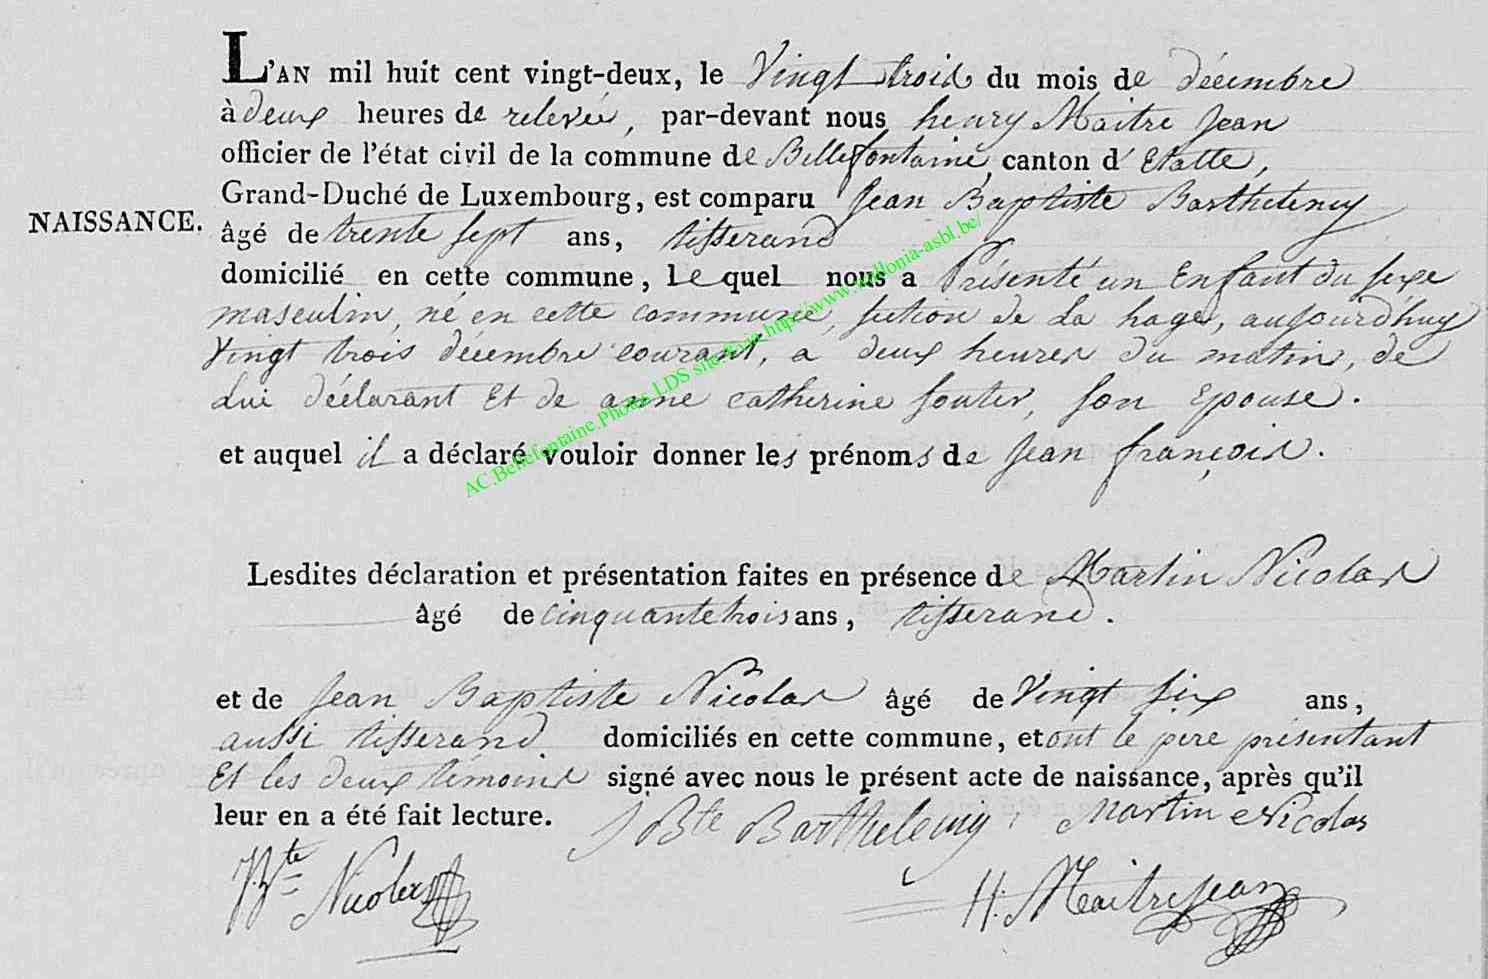 L'AN mil huit cent vingt-deux, le Vingt trois du mois de décembre
à deux heures de relevée, par-devant nous henry Maitre Jean
officier de l'état civil de la commune de Bellefontaine, canton d'Etalle,
Grand-Duché de Luxembourg, est comparu Jean Baptiste Barthelemy
NAISSANCE.
âgé de trente sept ans, tisserand
domicilié en cette commune, Le quel nous a Présenté un Enfant du sexe
masculin, né en cette commune, section de La hage, aujourd'huy
Vingt trois décembre courant, a deux heures du matin, de
Lui déclarant Et de anne catherine souter, son Epouse.
et auquel il a déclaré vouloir donner les prénoms de Jean françois.
AC.Bellefontaine.Photos LDS site http://www.wallonia-asbl.be/
Lesdites déclaration et présentation faites en présence de Martin Nicolas
âgé de cinquante trois ans, tisserand.
et de Jean Baptiste Nicolas âgé de Vingt six ans,
aussi tisserand. domiciliés en cette commune, et ont le pere présentant
Et les deux témoins signé avec nous le présent acte de naissance, après qu'il
leur en a été fait lecture. J Bte Barthelemy Martin Nicolas
J.Bte Nicolas H. Maitrejean